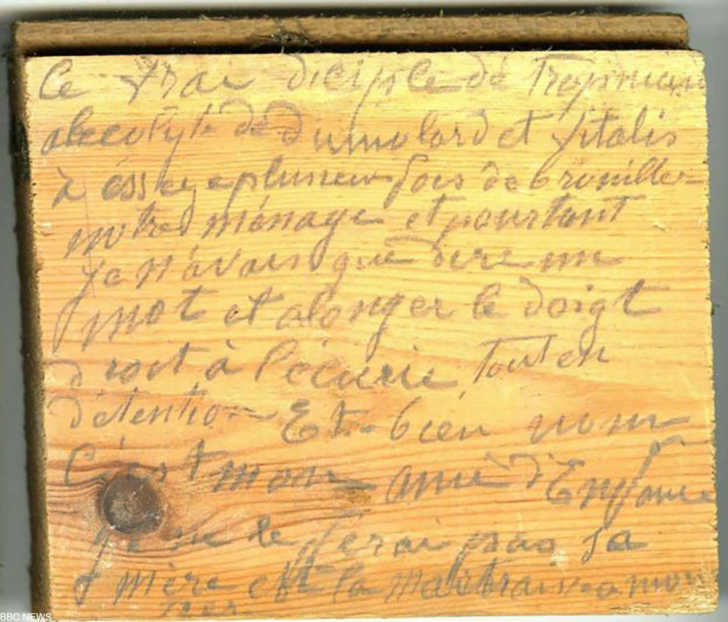 Ce vrai diciple de Tropman
alecolyte de Dumolard et Vitalis
à éssayé plusieur fois de brouiller
notre ménage et pourtant
je n'avais que dire un
mot et alonger le doigt
droit à l'écurie tout en
détention Et bien non
C'est mon ami d'Enfance
je ne le ferai pas sa
mère est la maitraisse a mon
BBC NEWS